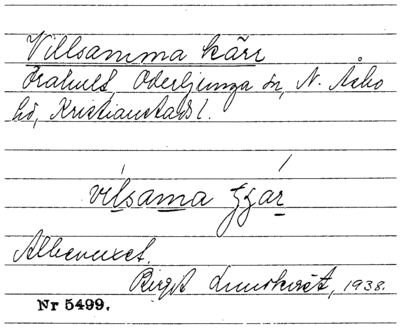 Villsamma kärr
Örahult, Oderljunga sn, N. Åsbo
hd, Kristianstads l.
vilsama
Albevuxet.
Birgit Lundkvist, 1938.
Nr 5499.